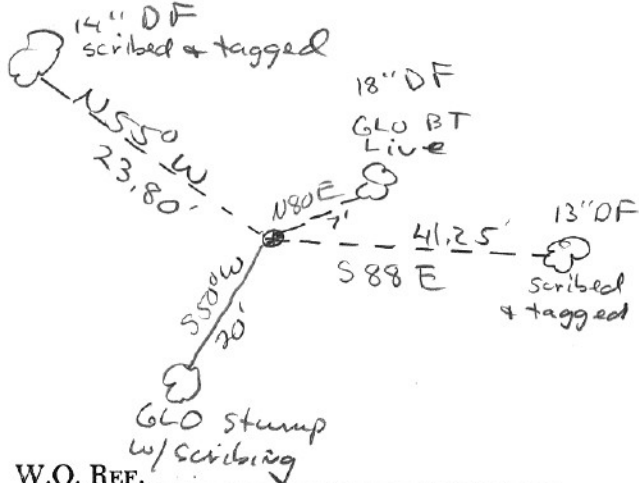 14" DF
scribed & tagged
18" DF
GLO BT
Live
N55° W
23.80'
N80E
7'
13" DF
41.25'
S 88 E
scribed
& tagged
S50°W
20'
GLO stump
w/ scribing
W.O. REF.